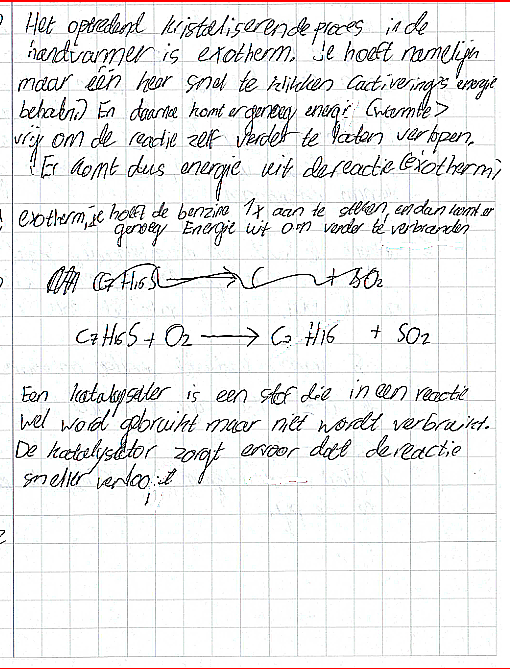 Het optredend kristaliserende proces in de
handwarmer is exotherm. Je hoeft namelijk
maar één keer snel te klikken (activerings energie
behalen) En daarna komt er genoeg energi (warmte>
vrij om de reactie zelf verder te laten verlopen.
Er komt dus energie uit de reactie (exotherm)
exotherm, je hoeft de benzine 1x aan te steken, en dan komt er
genoeg Energie uit om verder te verbranden
C7H16S → C + SO2
C7H16S + O2 → C7 H16 + SO2
Een katalysator is een stof die in een reactie
wel word gebruikt maar niet wordt verbruikt.
De katalysator zorgt ervoor dat de reactie
sneller verloopt